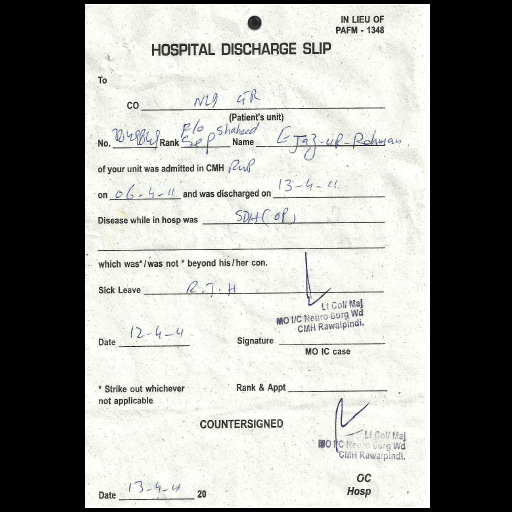 IN LIEU OF
PAFM - 1348
HOSPITAL DISCHARGE SLIP
To
CO NLI GR
(Patient's unit)
F/o Shaheed
No. Rank Sep Name Ejaz-ur-Rehman
of your unit was admitted in CMH RWP
on 06-4-11 and was discharged on 13-4-11
Disease while in hosp was SDH (OP)
which was*/was not * beyond his/her con.
Sick Leave R.T.H
Lt Col/ Maj
MO I/C Neuro Surg Wd
CMH Rawalpindi.
Date 12-4-11 Signature
MO IC case
* Strike out whichever
not applicable
Rank & Appt
COUNTERSIGNED
Lt Col/ Maj
MO I/C Neuro Surg Wd
CMH Rawalpindi.
OC
Hosp
Date 13-4-11 20